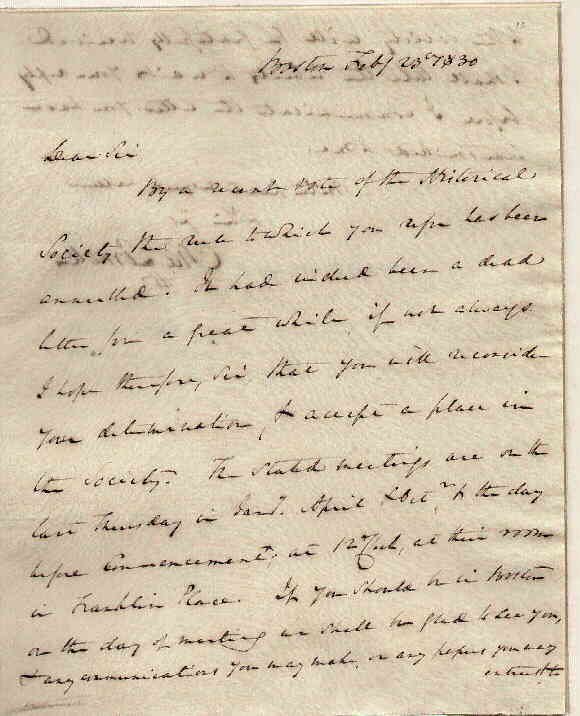 Boston Feby 23d 1830
Dear Sir
By a recent vote of the Historical
Society the rule to which you refer has been
annulled. It had indeed been a dead
letter for a great while, if not always.
I hope therefore, Sir that you will reconsider
your determination, & accept a place in
the Society. The stated meetings are on the
last Thursday in Jany. April & Octr. & the day
before Commencement; at 12 oClock, at their room
in Franklin Place. If you should be in Boston
on the day of meeting we shall be glad to see you,
& any communications you may make, or any papers you may
entrust to